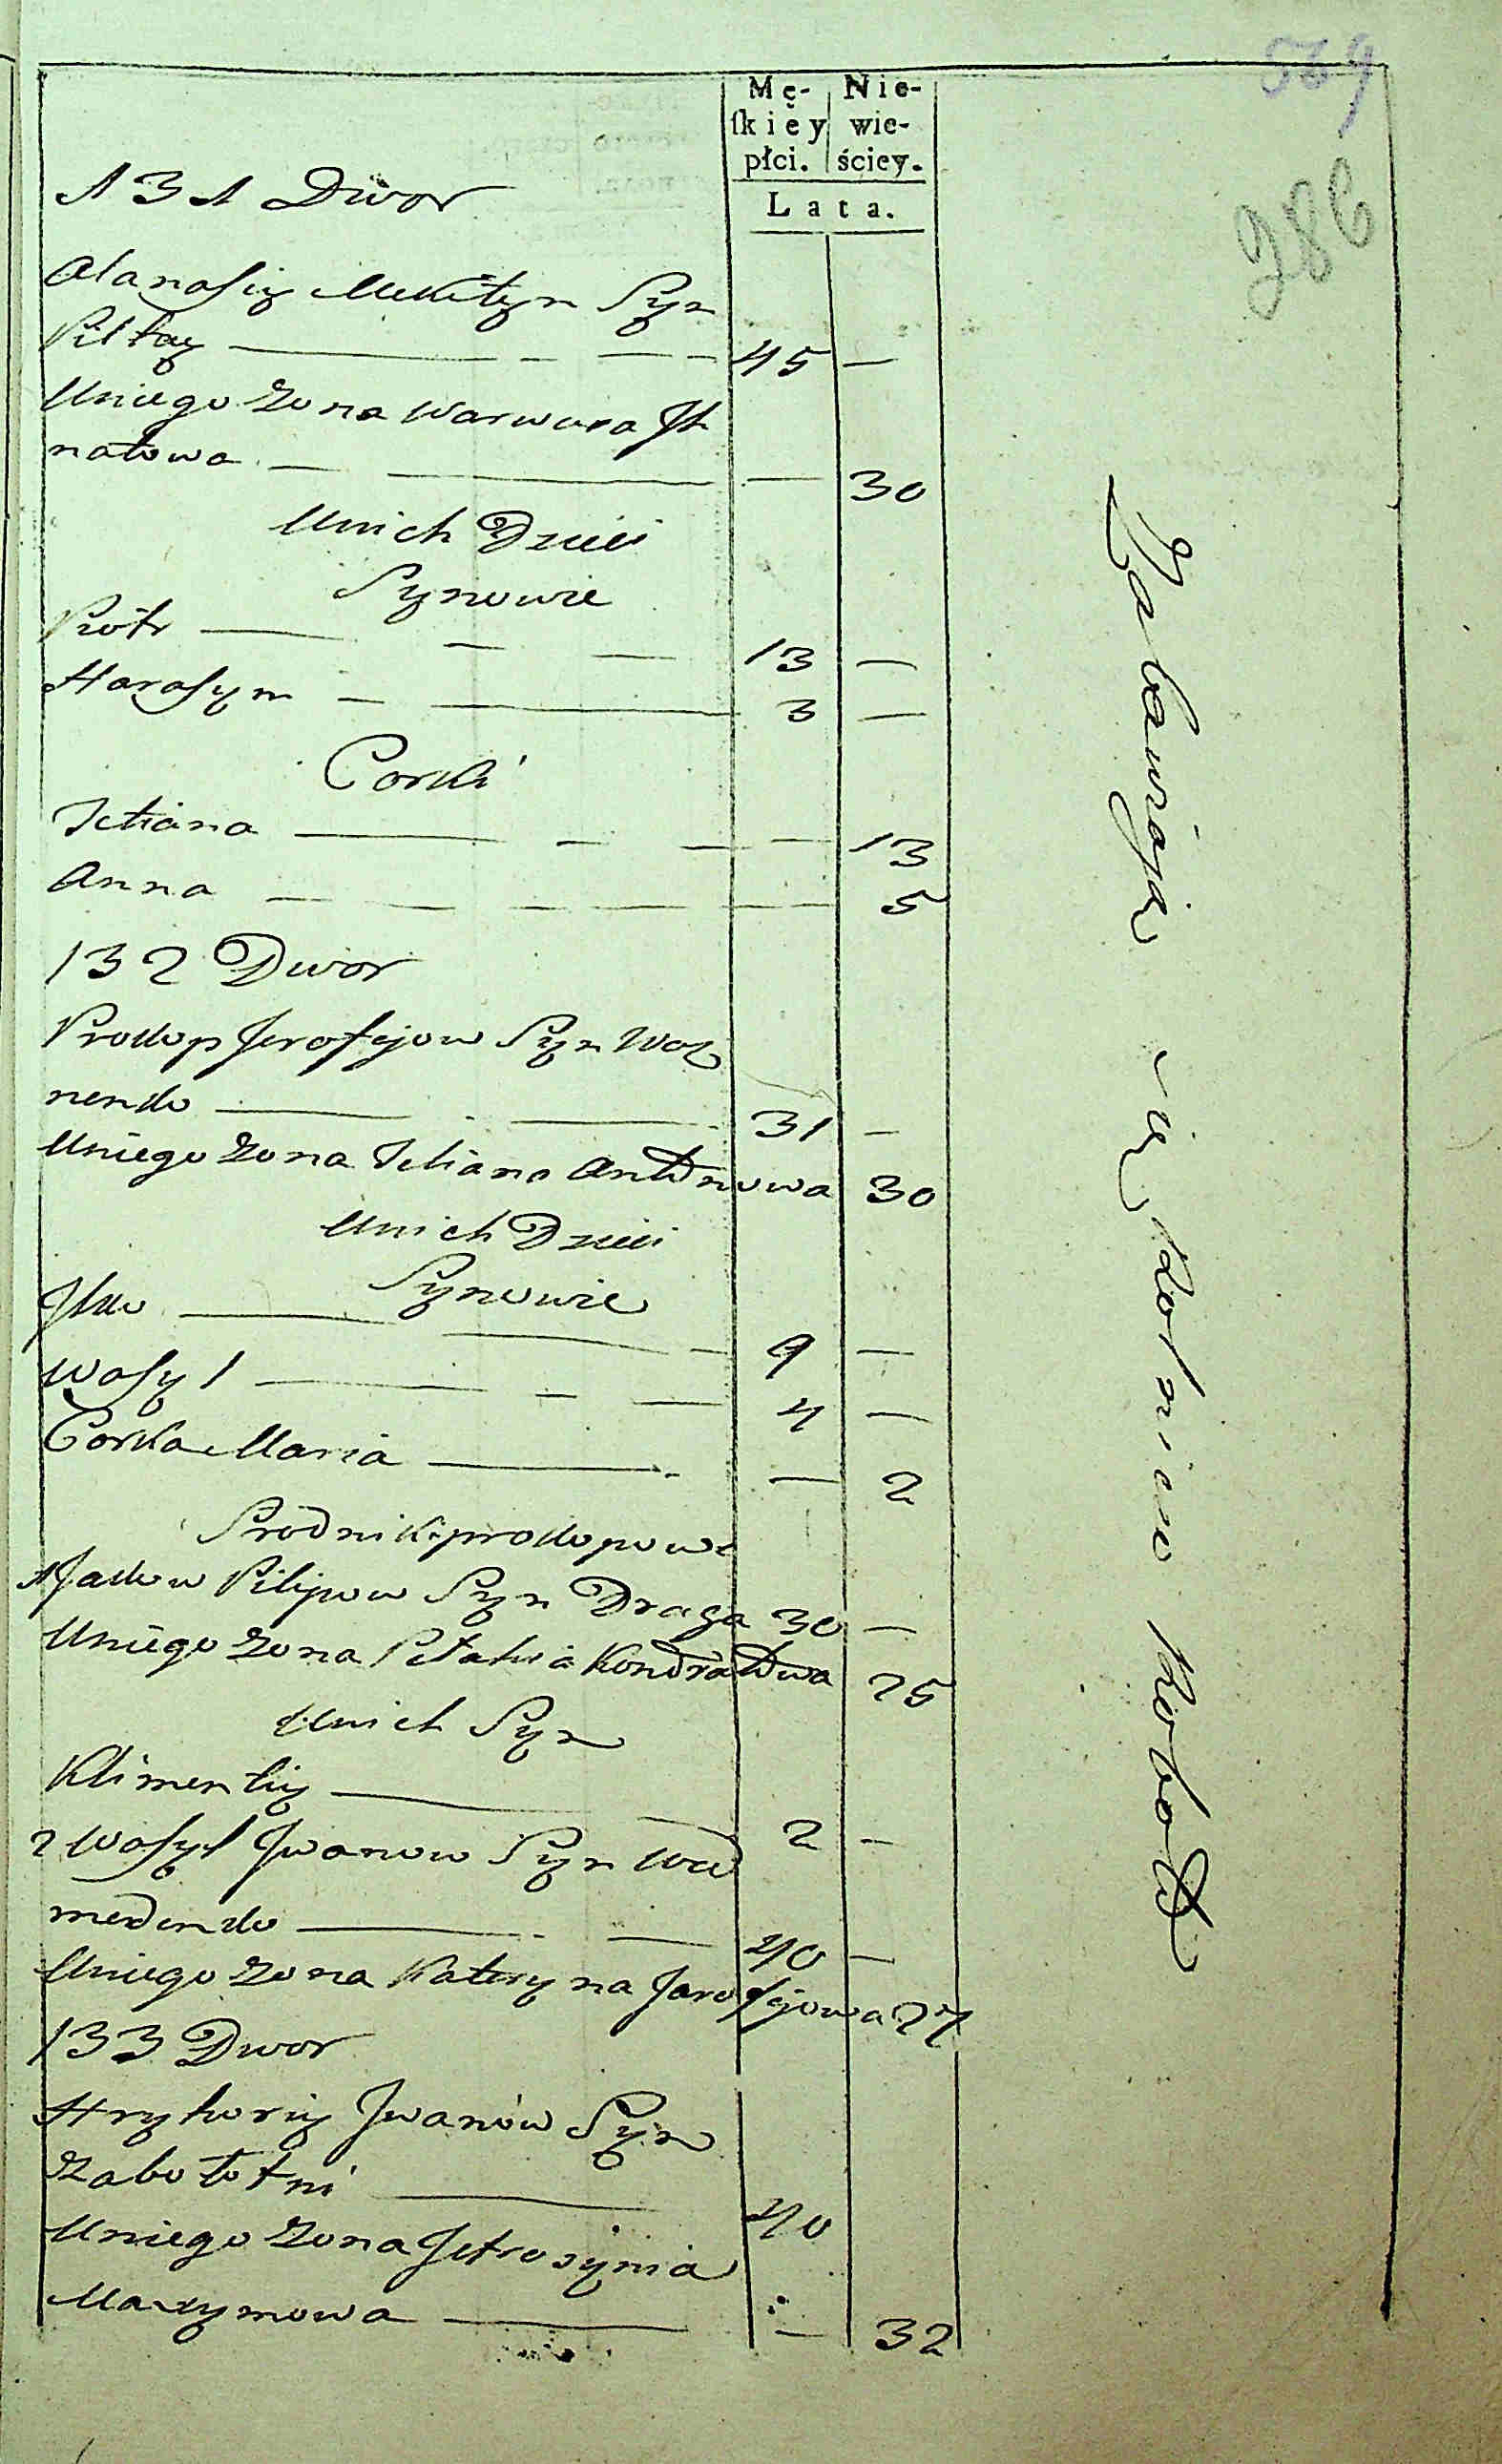 539
286
Mę- Nie-
ſkiey wie-
płci. ściey.
Lata.
131 Dwor
Atanasiy Mikityn Syn
Piltay 45 —
Uniego Zona Warwara Jh
natowa — 30
Unich Dzieci
Synowie
Piotr 13 —
Harasym 3 —
Corki
Tetiana — 13
Anna — 5
132 Dwor
Prokop Jerofejow Syn Woz
nenko 31 —
Uniego Zona Tetiana Antonowa 30
Unich Dzieci
Synowie
Jlko 9 —
Wasyl 4 —
Corka Maria — 2
Prokopowe
1 Jackow Pilipow Syn Draga 30 —
Uniego Zona Pelahia Kondratowa 25
Unich Syn
Klimentiy 2 —
2 Wasyl Jwanow Syn
medenko 40 —
Uniego Zona Kateryna Jarofejowa 27
133 Dwor
Hryhoriy Jwanow Syn
Zabołotni 40
Uniego Zona Jefrosynia
Maxymowa — 32
Zabawiaią się Rolniczo Robotą